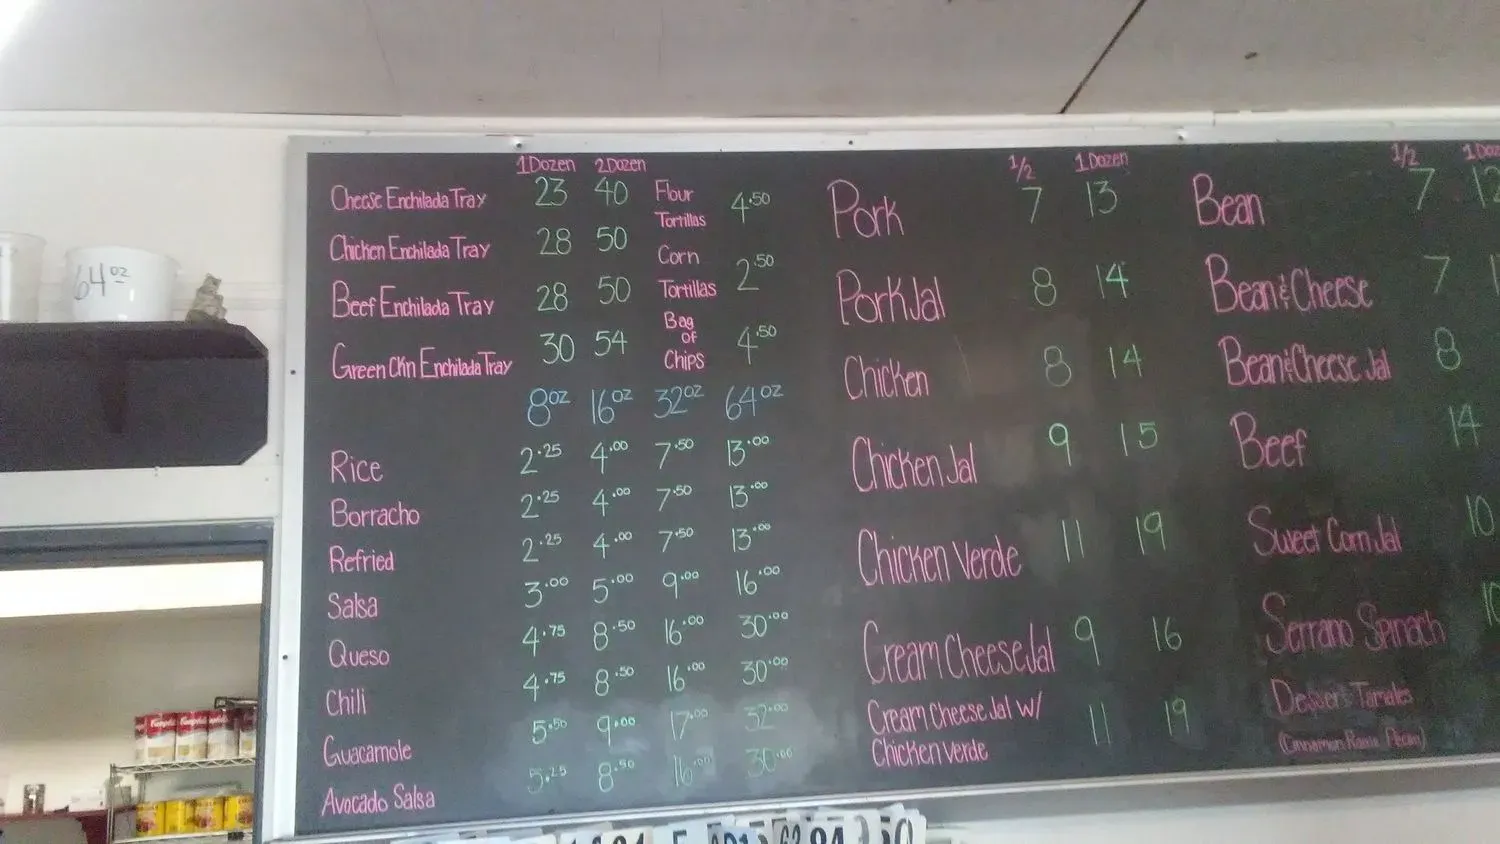 1 Dozen 2 Dozen
Cheese Enchilada Tray 23 40
Chicken Enchilada Tray 28 50
Beef Enchilada Tray 28 50
Green Ckn Enchilada Tray 30 54
Flour
Tortillas 4.50
Corn
Tortillas 2.50
Bag
of
Chips 4.50
8oz 16oz 32oz 64oz
Rice 2.25 4.00 7.50 13.00
Borracho 2.25 4.00 7.50 13.00
Refried 2.25 4.00 7.50 13.00
Salsa 3.00 5.00 9.00 16.00
Queso 4.75 8.50 16.00 30.00
Chili 4.75 8.50 16.00 30.00
Guacamole 5.50 9.00 17.00 32.00
Avocado Salsa 5.25 8.50 16.00 30.00
1/2 1 Dozen
Pork 7 13
Pork Jal 8 14
Chicken 8 14
Chicken Jal 9 15
Chicken Verde 11 19
Cream Cheese Jal 9 16
Cream Cheese Jal w/
Chicken Verde 11 19
1/2
Bean 7 12
Bean & Cheese 7
Bean & Cheese Jal 8
Beef 14
Sweet Corn Jal 10
Serrano Spinach 10
Dessert Tamales
(Cinnamon Raisin Pecan)
64oz